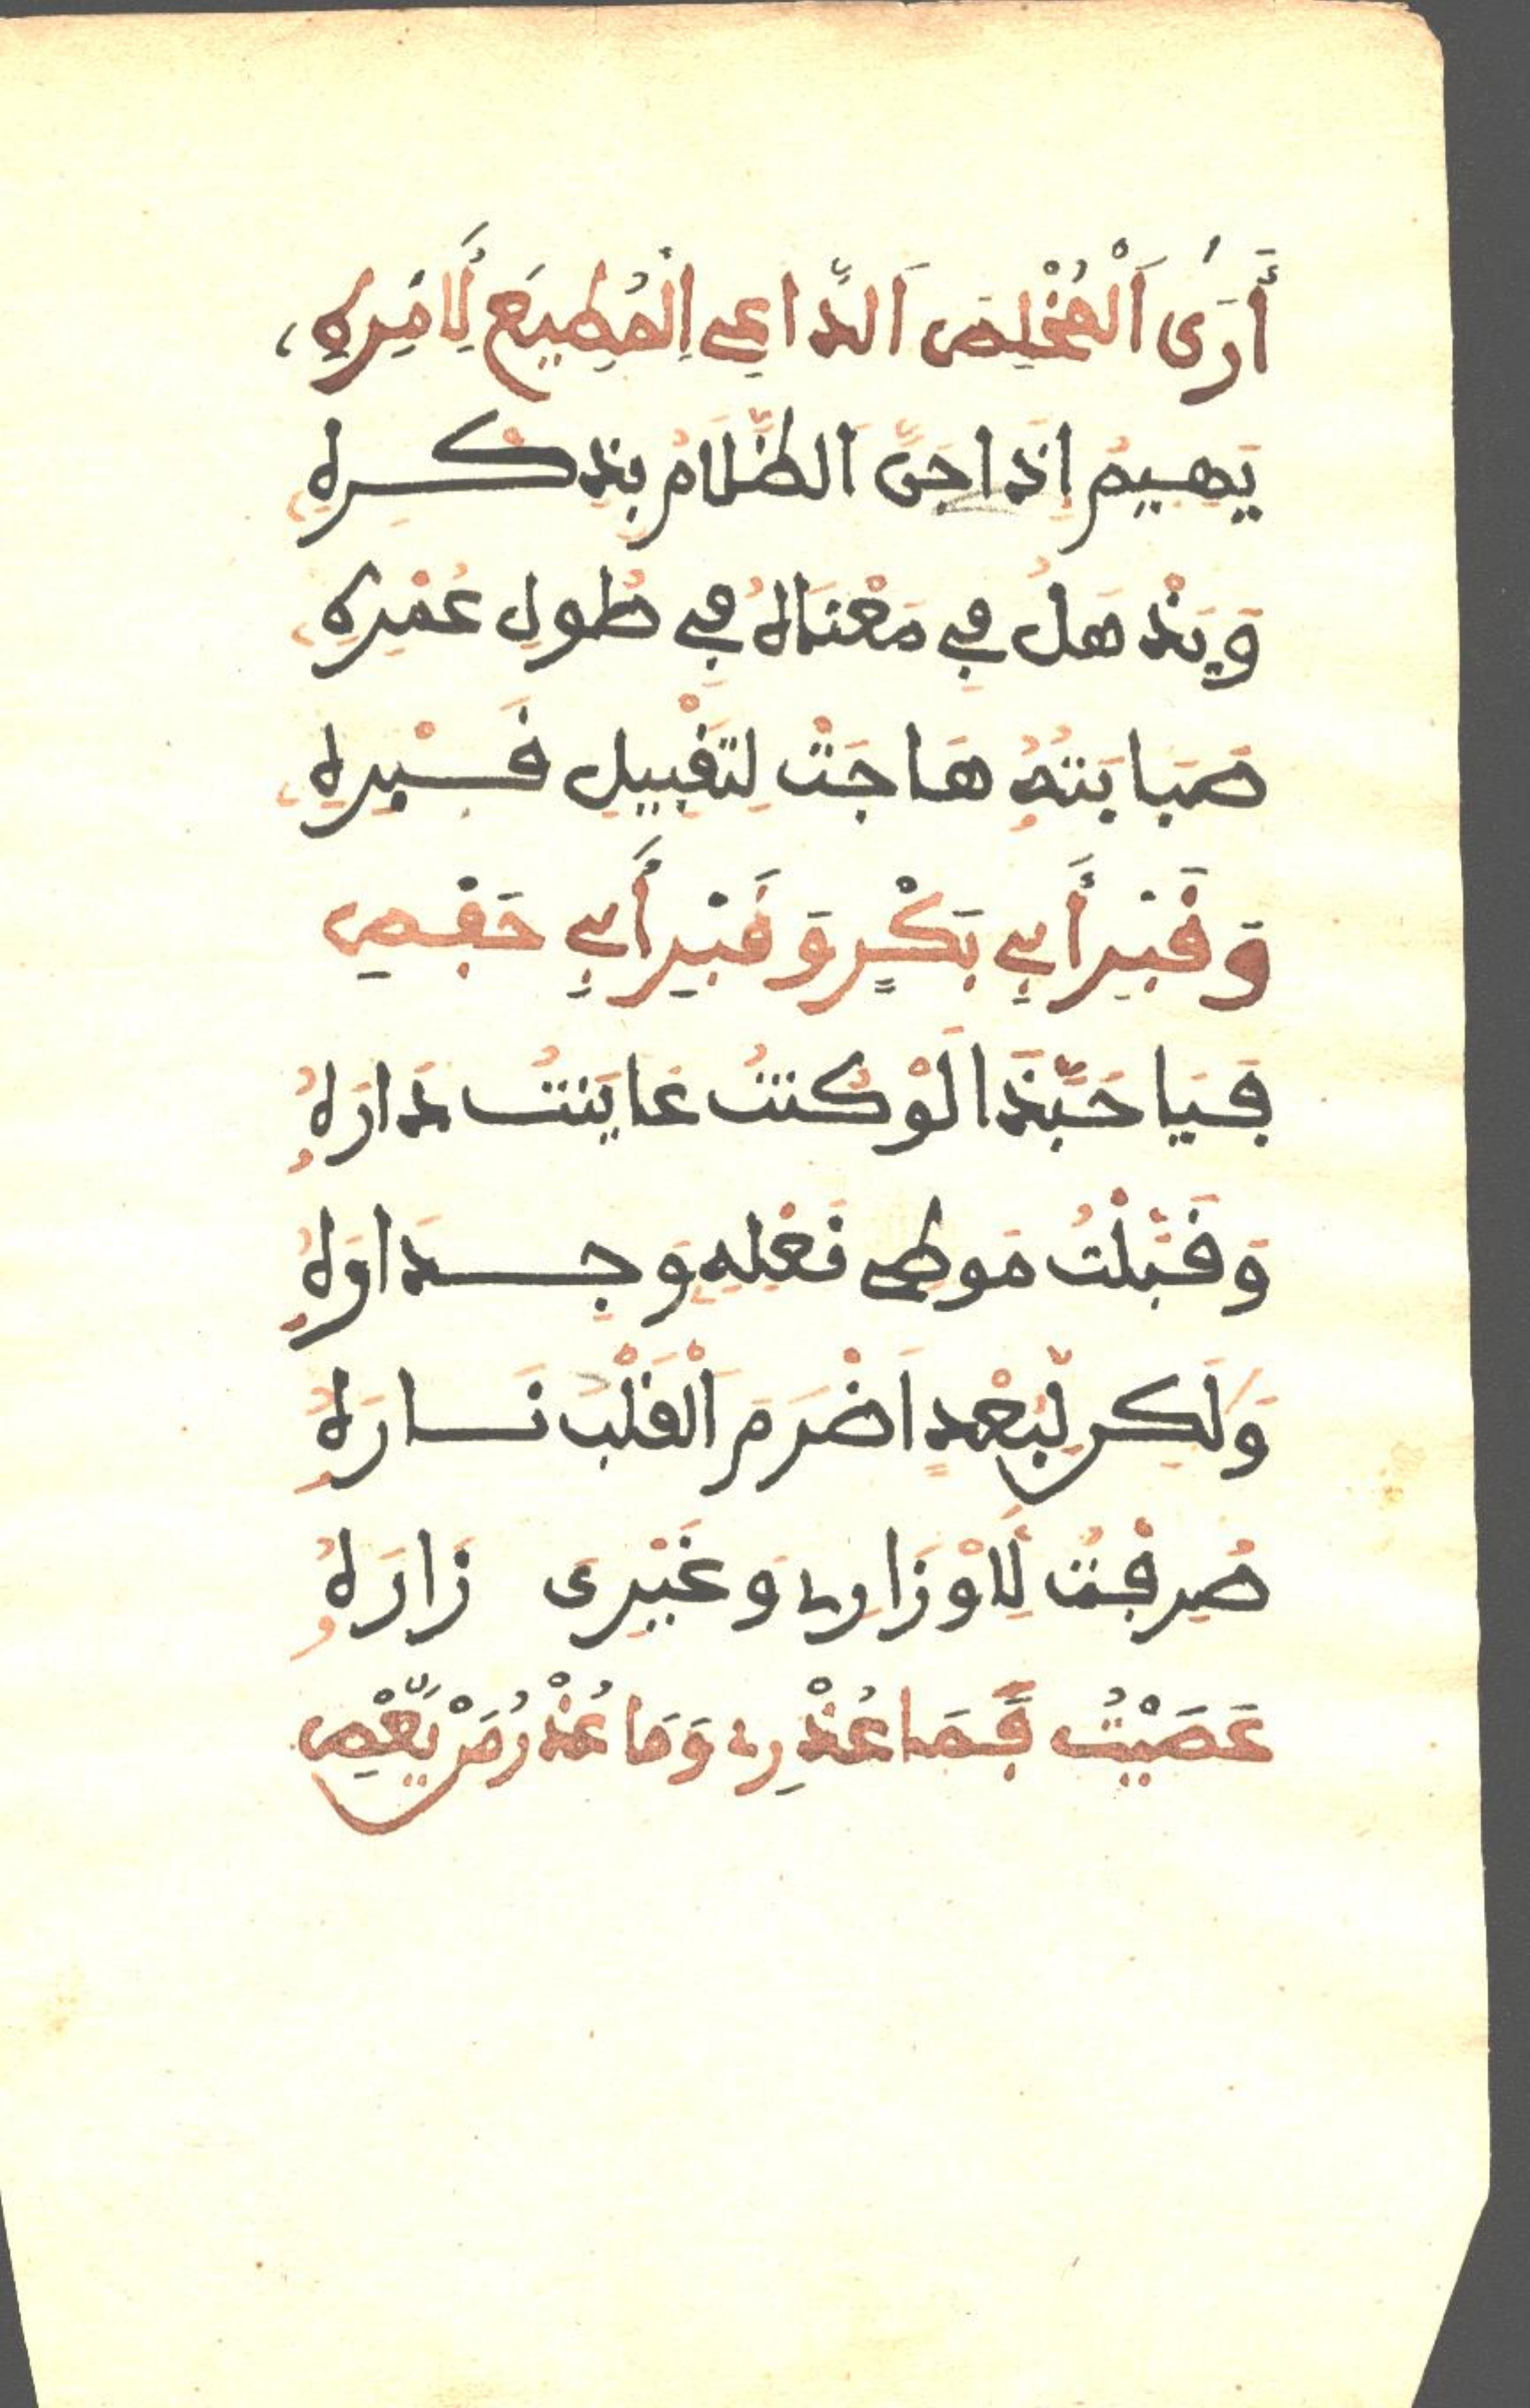 أَرَى اَلْمُخْلِصَ اَلدَّاعِي اِلْمُطِيعَ لِأَمْرِهِ،
يَهِيمُ اِذَا جَنَّ اَلظَّلَامُ بِذِكْرِهِ
وَيَذْهَلُ فِي مَعْنَاهُ فِي طُولِ عُمْرِهِ
صَبَابَتُهُ هَاجَتْ لِتَقْبِيلِ قَبْرِهِ
وَقَبْرِ أَبِي بَكْرٍ وَقَبْرِ أَبِي حَفْصِ
فَيَا حَبَّذَا لَوْ كُنْتُ عَايَنْتُ دَارَهُ
وَقَبَّلْتُ مَوطِى نَعْلِهِ وَجِدَاوَهُ
وَلَكِن لِّبُعْدٍ اَضْرَمَ اَلْقَلْبَ نَارَهُ
صُرِفْتُ لِأَوْزَارِى وَغَيْرِى زَارَهُ
عَصَيْتُ فَمَا عُذْرِى وَمَا عُذْرُ مَنْ يَّعْصِ